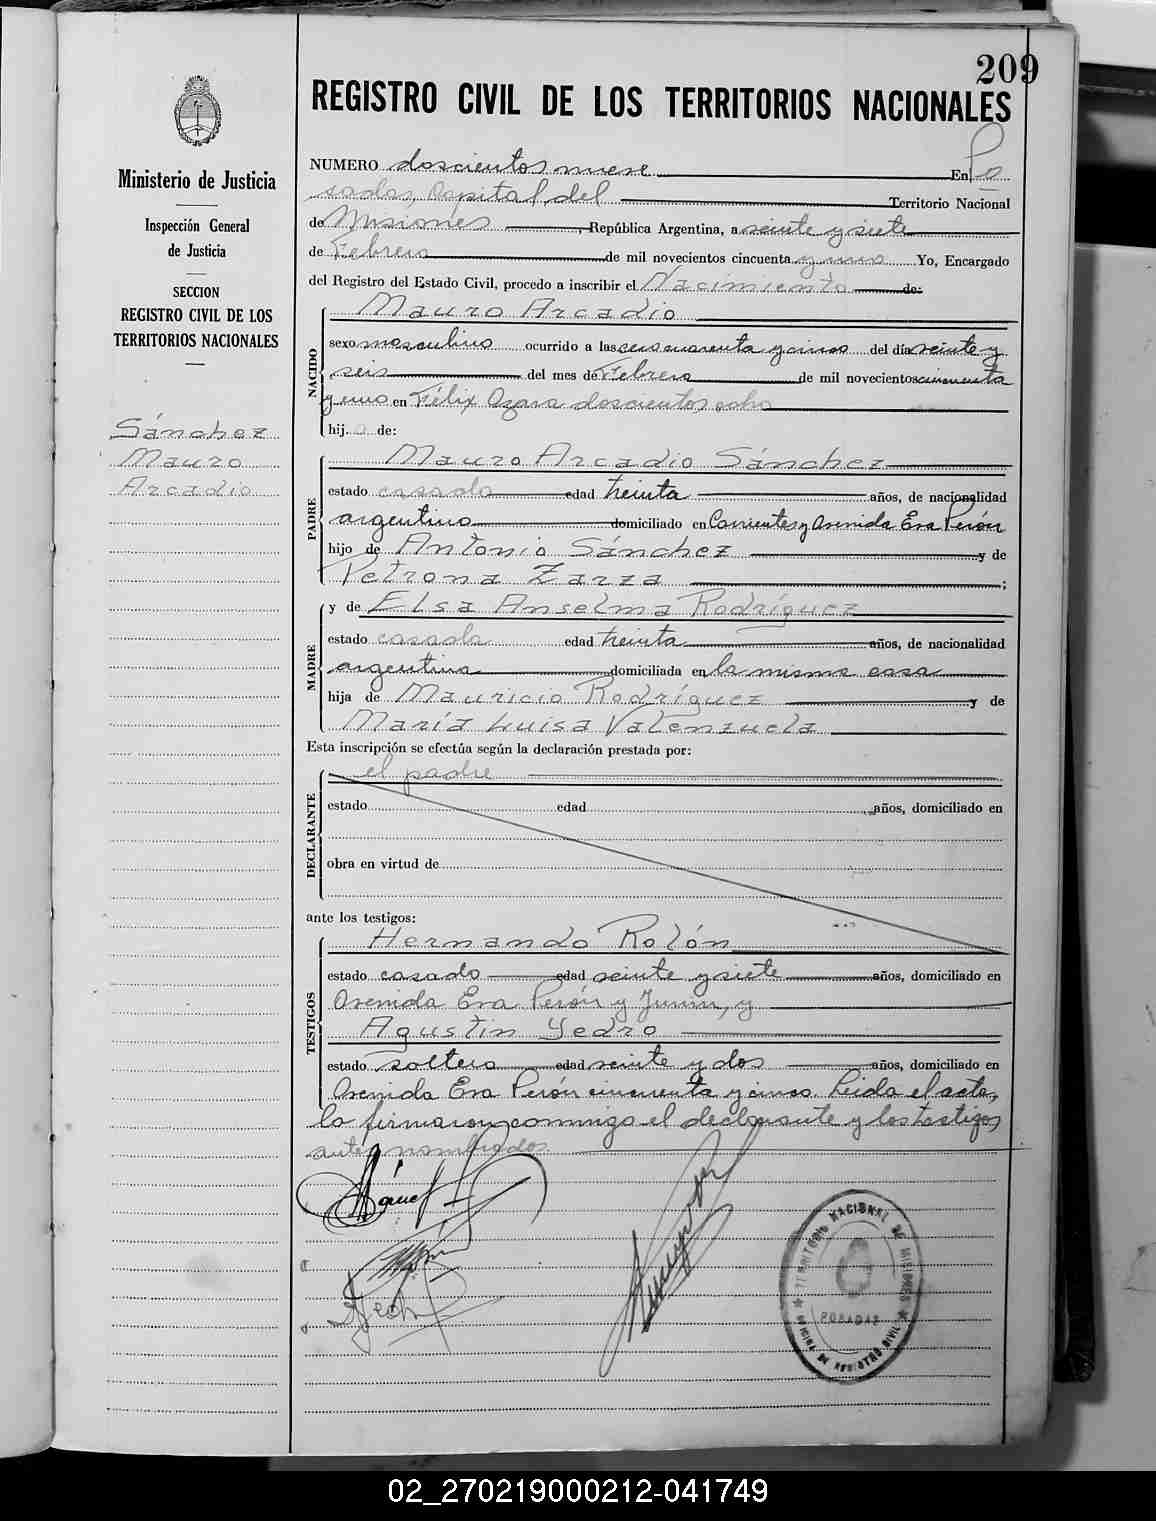 209
REGISTRO CIVIL DE LOS TERRITORIOS NACIONALES
Ministerio de Justicia
Inspección General
de Justicia
SECCION
REGISTRO CIVIL DE LOS
TERRITORIOS NACIONALES
Sánchez
Mauro
Arcadio
NUMERO doscientos nueve En Po
sadas, Capital del Territorio Nacional
de Misiones, República Argentina, a veinte y siete
de Febrero de mil novecientos cincuenta y uno Yo, Encargado
del Registro del Estado Civil, procedo a inscribir el Nacimiento de:
NACIDO
Mauro Arcadio
sexo masculino ocurrido a las cero cuarenta y cinco del día veinte y
seis del mes de Febrero de mil novecientos cincuenta
y uno en Félix Azara doscientos ocho
hijo de:
PADRE
Mauro Arcadio Sánchez
estado casado edad treinta años, de nacionalidad
argentino domiciliado en Corrientes y Avenida Eva Perón
hijo de Antonio Sánchez y de
Petrona Zarza ;
MADRE
y de Elsa Anselma Rodríguez
estado casada edad treinta años, de nacionalidad
argentina domiciliada en la misma casa
hija de Mauricio Rodríguez y de
María Luisa Valenzuela
Esta inscripción se efectúa según la declaración prestada por:
DECLARANTE
el padre
estado edad años, domiciliado en
obra en virtud de
ante los testigos:
TESTIGOS
Hernando Rolón
estado casado edad veinte y siete años, domiciliado en
Avenida Eva Perón y Junín, y
Agustín Yedro
estado soltero edad veinte y dos años, domiciliado en
Avenida Eva Perón cincuenta y cinco. Leida el acta,
la firmaron conmigo el declarante y los testigos
antes nombrados.
TERRITORIO NACIONAL DE MISIONES
POSADAS
OFICINA DE REGISTRO CIVIL
02_270219000212-041749